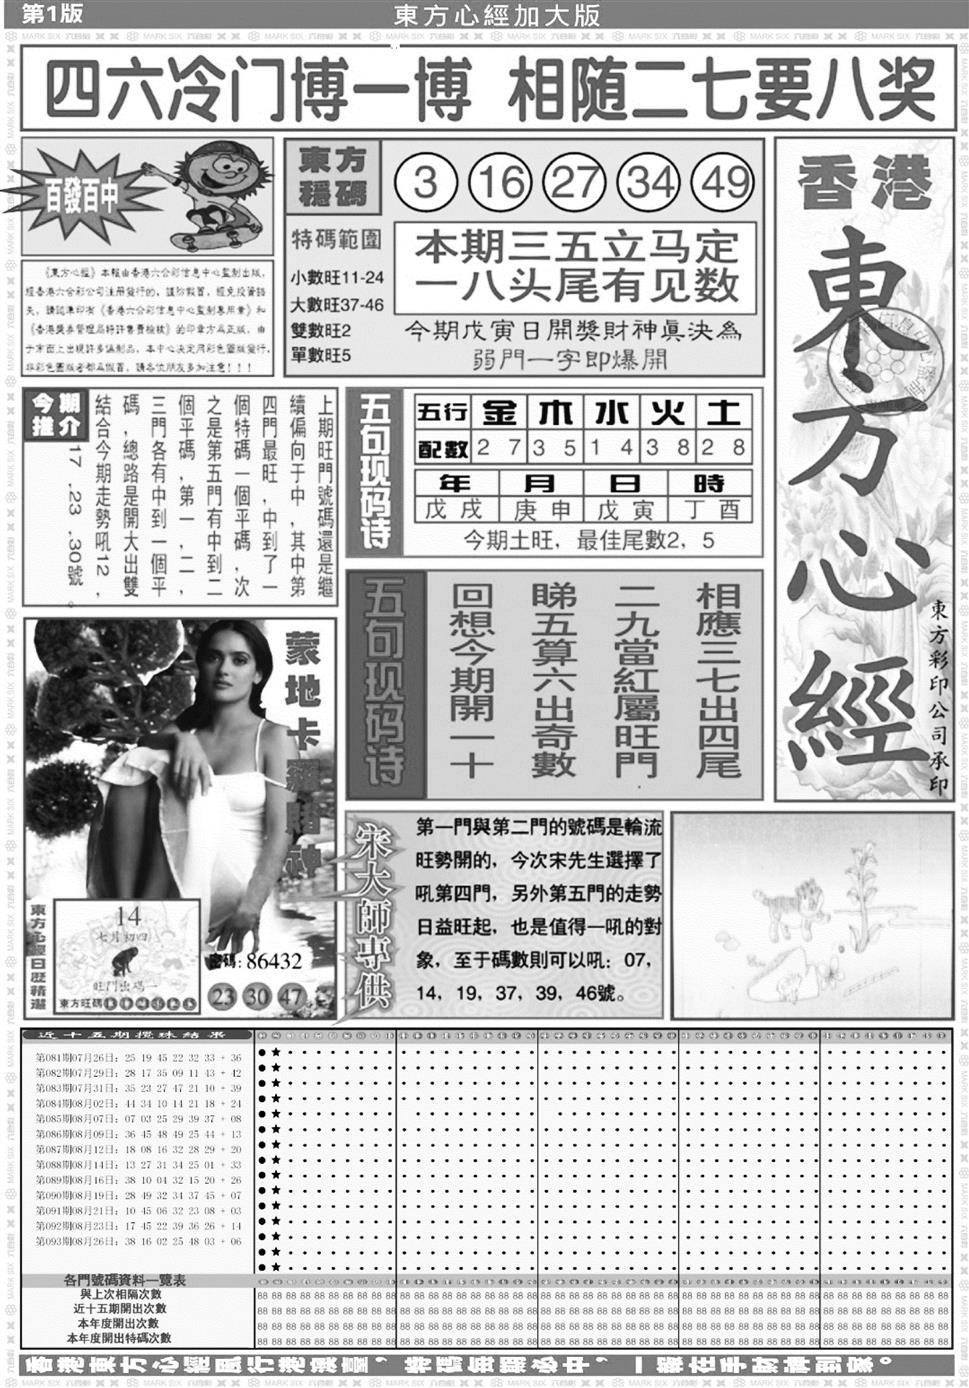 第1版
東方心經加大版
四六冷门博一博 相随二七要八奖
百發百中
《東方心經》本報由香港六合彩信息中心監制出版,
經香港六合彩公司注册發行的,謹防假冒,經免投資錯
失,請認準印有《香港六合彩信息中心監制專用章》和
《香港獎券管理局特許書費檢核》的印章方爲正版,由
于市面上出現許多僞制品,本中心决定用彩色圖版發行,
非彩色圖版者都爲假冒,請各位朋友多加注意!!!
東方
穩碼
3 16 27 34 49
特碼範圍
小數旺11-24
大數旺37-46
雙數旺2
單數旺5
本期三五立马定
一八头尾有见数
今期戊寅日開獎財神眞決為
弱門一字即爆開
香港
東方心經
東方彩印公司承印
今期
推介
上期旺門號碼還是繼
續偏向于中,其中第
四門最旺,中到了一
個特碼一個平碼,次
之是第五門有中到二
個平碼,第一,二,
三門各有中到一個平
碼,總路是開大出雙
結合今期走勢吼12,
17,23,30號。
五句现码诗
五行 金 木 水 火 土
配數 2 7 3 5 1 4 3 8 2 8
年 月 日 時
戊戌 庚申 戊寅 丁酉
今期土旺,最佳尾數2,5
五句现码诗
相應三七出四尾
二九當紅屬旺門
睇五算六出奇數
回想今期開一十
蒙地卡羅賭神
東方心經日歷精選
14
七月初四
旺門出碼一
東方旺碼
密碼:86432
23 30 47
宋大師專供
第一門與第二門的號碼是輪流
旺勢開的,今次宋先生選擇了
吼第四門,另外第五門的走勢
日益旺起,也是值得一吼的對
象,至于碼數則可以吼:07,
14,19,37,39,46號。
近十五期攪珠結果
第081期07月26日:25 19 45 22 32 33 + 36
第082期07月29日:28 17 35 09 11 43 + 42
第083期07月31日:35 23 27 47 21 10 + 39
第084期08月02日:44 34 10 14 21 18 + 24
第085期08月07日:07 03 25 29 39 37 + 08
第086期08月09日:36 45 48 49 25 44 + 13
第087期08月12日:18 08 16 32 28 29 + 20
第088期08月14日:13 27 31 34 25 01 + 33
第089期08月16日:38 10 04 32 15 20 + 26
第090期08月19日:28 49 32 34 37 45 + 07
第091期08月21日:10 45 06 32 23 08 + 03
第092期08月23日:17 45 22 39 36 26 + 14
第093期08月26日:38 16 02 25 48 03 + 06
各門號碼資料一覽表
與上次相隔次數
近十五期開出次數
本年度開出次數
本年度開出特碼次數
香港東方心經風行港澳臺,特碼每期必中,一版在手財神到家。